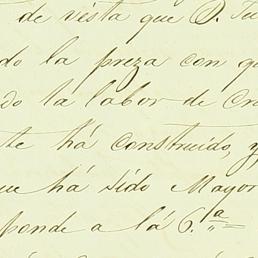 de vista que D. Ju
do la preza con q
do la labor de Cr
te há construido, y
ue há sido Mayor
ponde a lá 6.ª